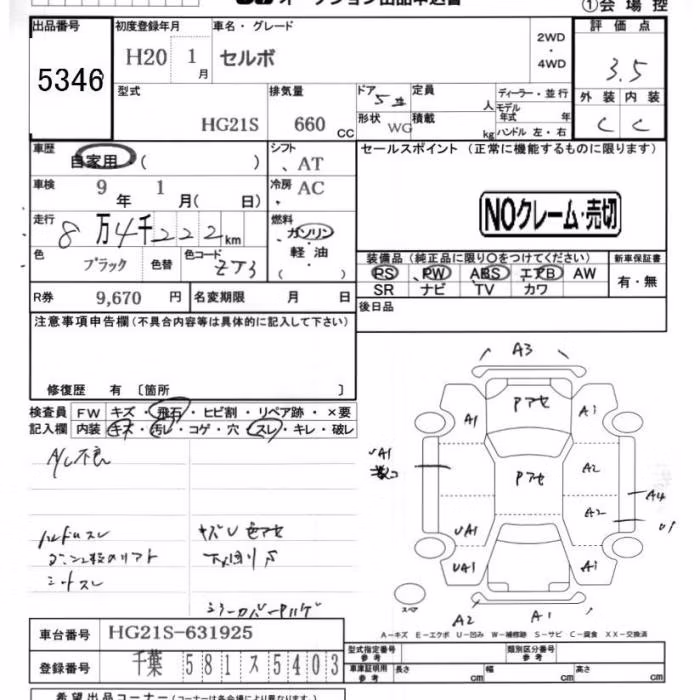 オークション出品申込書
①会場控
出品番号
5346
初度登録年月 車名・グレード
H20 1月 セルボ
2WD
・
4WD
評価点
3.5
型式 排気量 ドア 5 定員 人
HG21S 660 CC
形状 WG 積載 kg
ディーラー・並行
モデル年式 年
ハンドル 左・右
外装 内装
C C
車歴 自家用 ( )
シフト AT
セールスポイント (正常に機能するものに限ります)
車検 9年 1月 ( 日)
冷房 AC
NOクレーム・売切
走行 8万4千222km
燃料 ガソリン
軽油
( )
色 ブラック 色替 色コード ZJ3
装備品 (純正品に限り○をつけてください) 新車保証書
PS PW ABS エアB AW
有・無
SR ナビ TV カワ
R券 9,670 円 名変期限 月 日
後日品
注意事項申告欄 (不具合内容等は具体的に記入して下さい)
修復歴 有 〔箇所 〕
検査員 FW キズ・飛石・ヒビ割・リペア跡・×要
記入欄 内装 キズ・汚レ・コゲ・穴・スレ・キレ・破レ
A/C不良
ハンドルスレ
シートスレ
A3
Pアセ
A1 A1
Pアセ
A2
A2
A4
UA1
UA1
UA1 A1
スペア
A2 A1
A−キズ E−エクボ U−凹み W−補修跡 S−サビ C−腐食 XX−交換済
車台番号 HG21S-631925
登録番号 千葉 581 ス 5403
型式指定番号 参考 類別区分番号 参考
車庫証明用 参考 長さ cm 幅 cm 高さ cm
希望出品コーナー